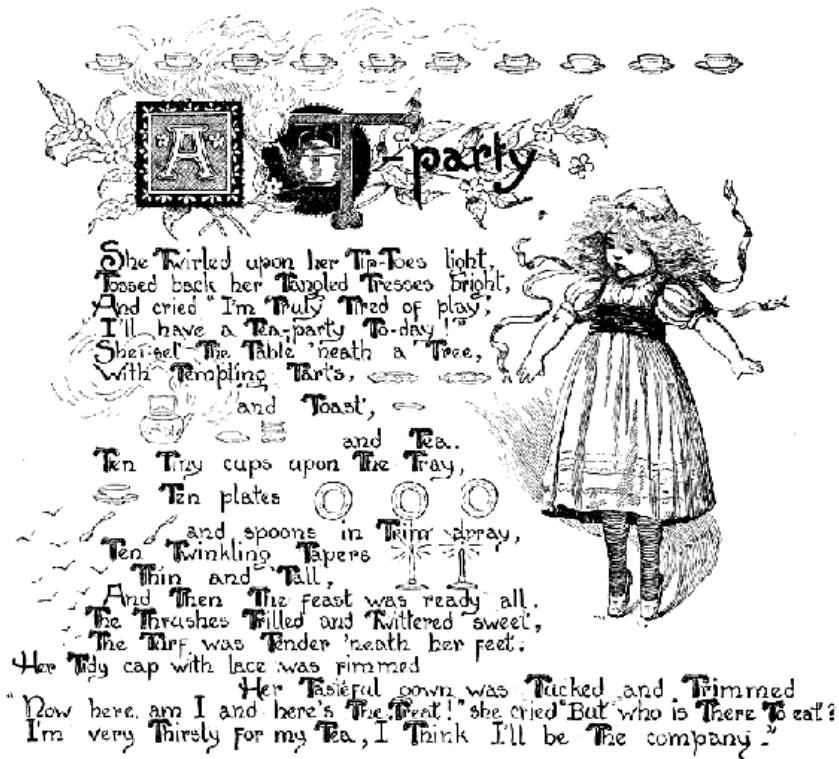 A T-party
She Twirled upon her Tip-Toes light,
Tossed back her Tangled Tresses bright,
And cried "I'm Truly Tired of play,
I'll have a Tea-party To-day!"
She set The Table 'neath a Tree,
With Tempting Tarts,
and Toast,
and Tea.
Ten Tiny cups upon The Tray,
Ten plates
and spoons in Trim array,
Ten Twinkling Tapers
Thin and Tall,
And Then The feast was ready all.
The Thrushes Trilled and Twittered sweet,
The Turf was Tender 'neath her feet.
Her Tidy cap with lace was rimmed
Her Tasteful gown was Tucked and Trimmed
"Now here am I and here's The Treat!" she cried "But who is There To eat?
I'm very Thirsty for my Tea, I Think I'll be The company."